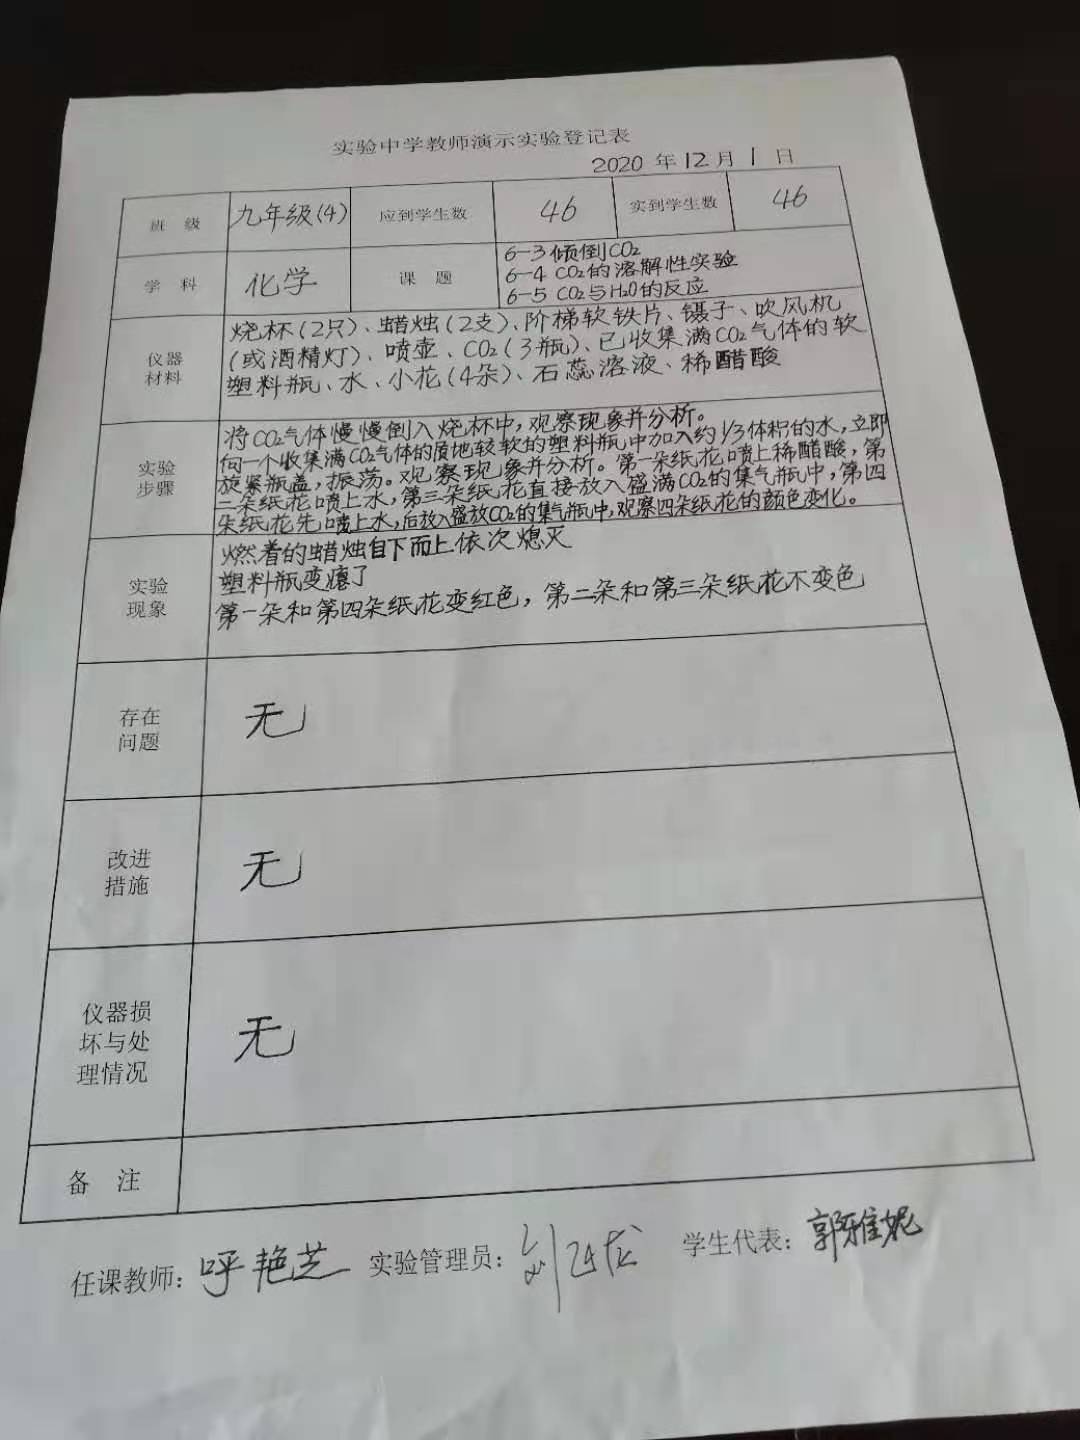 实验中学教师演示实验登记表
2020 年 12 月 1 日
班 级 九年级(4) 应到学生数 46 实到学生数 46
学 科 化学 课 题
6-3 倾倒CO₂
6-4 CO₂的溶解性实验
6-5 CO₂与H₂O的反应
仪器
材料
烧杯(2只)、蜡烛(2支)、阶梯软铁片、镊子、吹风机
(或酒精灯)、喷壶、CO₂(3瓶)、已收集满CO₂气体的软
塑料瓶、水、小花(4朵)、石蕊溶液、稀醋酸
实验
步骤
将CO₂气体慢慢倒入烧杯中,观察现象并分析。
向一个收集满CO₂气体的质地较软的塑料瓶中加入约1/3体积的水,立即
旋紧瓶盖,振荡。观察现象并分析。第一朵纸花喷上稀醋酸,第
二朵纸花喷上水,第三朵纸花直接放入盛满CO₂的集气瓶中,第四
朵纸花先喷上水,后放入盛放CO₂的集气瓶中,观察四朵纸花的颜色变化。
实验
现象
燃着的蜡烛自下而上依次熄灭
塑料瓶变瘪了
第一朵和第四朵纸花变红色,第二朵和第三朵纸花不变色
存在
问题
无
改进
措施
无
仪器损
坏与处
理情况
无
备 注
任课教师: 呼艳芝 实验管理员: 学生代表: 郭雅妮